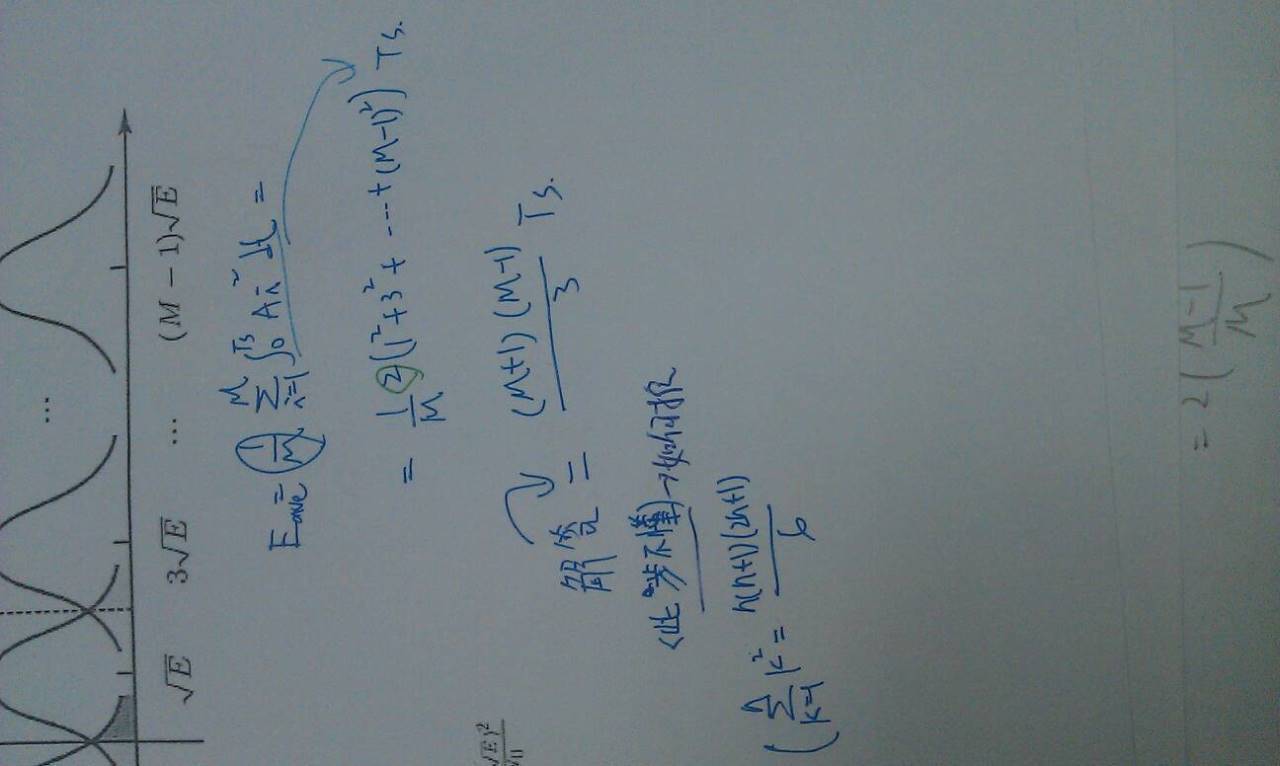 √E 3√E ... (M − 1)√E
...
E_ave = (1/M) Σ_{i=1}^{M} ∫_0^{Ts} A_i² dt =
= 1/M 2(1²+3²+ ---+(M-1)²) Ts.
解答 = (M+1)(M-1)/3 Ts.
<此步不懂>→如何求
(Σ_{k=1}^{n} k² = n(n+1)(2n+1)/6
= 2(M-1/M)